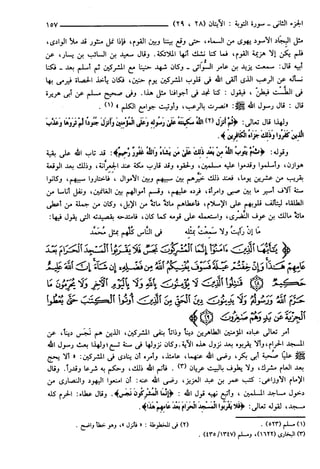 الجزء الثانى - سورة التوبة : الآيتان (٢٨ ، ٢٩)
١٥٧
مثل البِجَاد الأسود يهوى من السماء، حتى وقع بيننا وبين القوم، فإذا نمل منثور قد ملأ الوادى،
فلم يكن إلا هزيمة القوم، فما كنا نشك أنها الملائكة. وقال سعيد بن السائب بن يسار، عن
أبيه قال: سمعت يزيد بن عامر السُّوَائى - وكان شهد حنينا مع المشركين ثم أسلم بعد - فكنا
نسأله عن الرعب الذى ألقى الله فى قلوب المشركين يوم حنين، فكان يأخذ الحصاة فيرمى بها
فى الطَّسْت فيطنّ، فيقول : كنا نجد فى أجوافنا مثل هذا. وفى صحيح مسلم عن أبى هريرة
قال : قال رسول الله ﷺ: «نصرت بالرعب، وأوتيت جوامع الكلم » (١) .
ولهذا قال تعالى: ﴿ثُمَّ أَنزَلَ (٢) اللَّهُ سَكِينَتَهُ عَلَىٰ رَسُولِهِ وَعَلَى الْمُؤْمِنِينَ وَأَنزَلَ جُنُودًا لَّمْ تَرَوْهَا وَعَذَّبَ
الَّذِينَ كَفَرُوا وَذَٰلِكَ جَزَاءُ الْكَافِرِينَ﴾.
وقوله: ﴿ثُمَّ يَتُوبُ اللَّهُ مِنْ بَعْدِ ذَٰلِكَ عَلَىٰ مَن يَشَاءُ وَاللَّهُ غَفُورٌ رَّحِيمٌ﴾: قد تاب الله على بقية
هوازن، وأسلموا وقدموا عليه مسلمين، ولحقوه وقد قارب مكة عند الجِعرانة، وذلك بعد الوقعة
بقريب من عشرين يوما، فعند ذلك خيَّرهم بين سبيهم وبين الأموال، فاختاروا سبيهم، وكانوا
ستة آلاف أسير ما بين صبى وامرأة، فرده عليهم، وقسم أموالهم بين الغانمين، ونفل أناسا من
الطلقاء ليتألف قلوبهم على الإسلام، فأعطاهم مائة مائة من الإبل، وكان من جملة من أعطى
مائة مالك بن عوف النَّضْرى، واستعمله على قومه كما كان، فامتدحه بقصيدته التى يقول فيها:
ما إنْ رَأيتُ ولا سَمعْتُ بمثْله فى النَّاس كُلِّهم بمثل مُحَمَّد
عَامِهِمْ هَٰذَا وَإِنْ خِفْتُمْ عَيْلَةً فَسَوْفَ يُغْنِيكُمُ اللَّهُ مِن فَضْلِهِ إِن شَاءَ إِنَّ اللَّهَ عَلِيمٌ
حَرَّمَ اللَّهُ وَرَسُولُهُ وَلَا يَدِينُونَ دِينَ الْحَقِّ مِنَ الَّذِينَ أُوتُوا الْكِتَابَ حَتَّىٰ يُعْطُوا
الْجِزْيَةَ عَن يَدٍ وَهُمْ صَاغِرُونَ
أمر تعالى عباده المؤمنين الطاهرين دينا وذاتا بنفى المشركين، الذين هم نَجَس دينا، عن
المسجد الحرام، وألا يقربوه بعد نزول هذه الآية. وكان نزولها فى سنة تسع؛ ولهذا بعث رسول الله
ﷺ عليا صحبة أبى بكر، رضى الله عنهما، عامئذ، وأمره أن ينادى فى المشركين: « ألا يحج
بعد العام مشرك، ولا يطوف بالبيت عريان (٣) . فأتم الله ذلك، وحكم به شرعا وقدراً. وقال
الإمام الأوزاعى: كتب عمر بن عبد العزيز، رضى الله عنه: أن امنعوا اليهود والنصارى من
دخول مساجد المسلمين، وأتبع نهيه قول الله : ﴿إِنَّمَا الْمُشْرِكُونَ نَجَسٌ﴾. وقال عطاء: الحرم كله
مسجد، لقوله تعالى: ﴿فَلَا يَقْرَبُوا الْمَسْجِدَ الْحَرَامَ بَعْدَ عَامِهِمْ هَٰذَا﴾.
(١) مسلم (٥٢٣) .
(٢) فى المخطوطة : « فأنزل »، وهو خطأ واضح .
(٣) البخارى (١٦٢٢)، ومسلم (١٣٤٧ / ٤٣٥) .